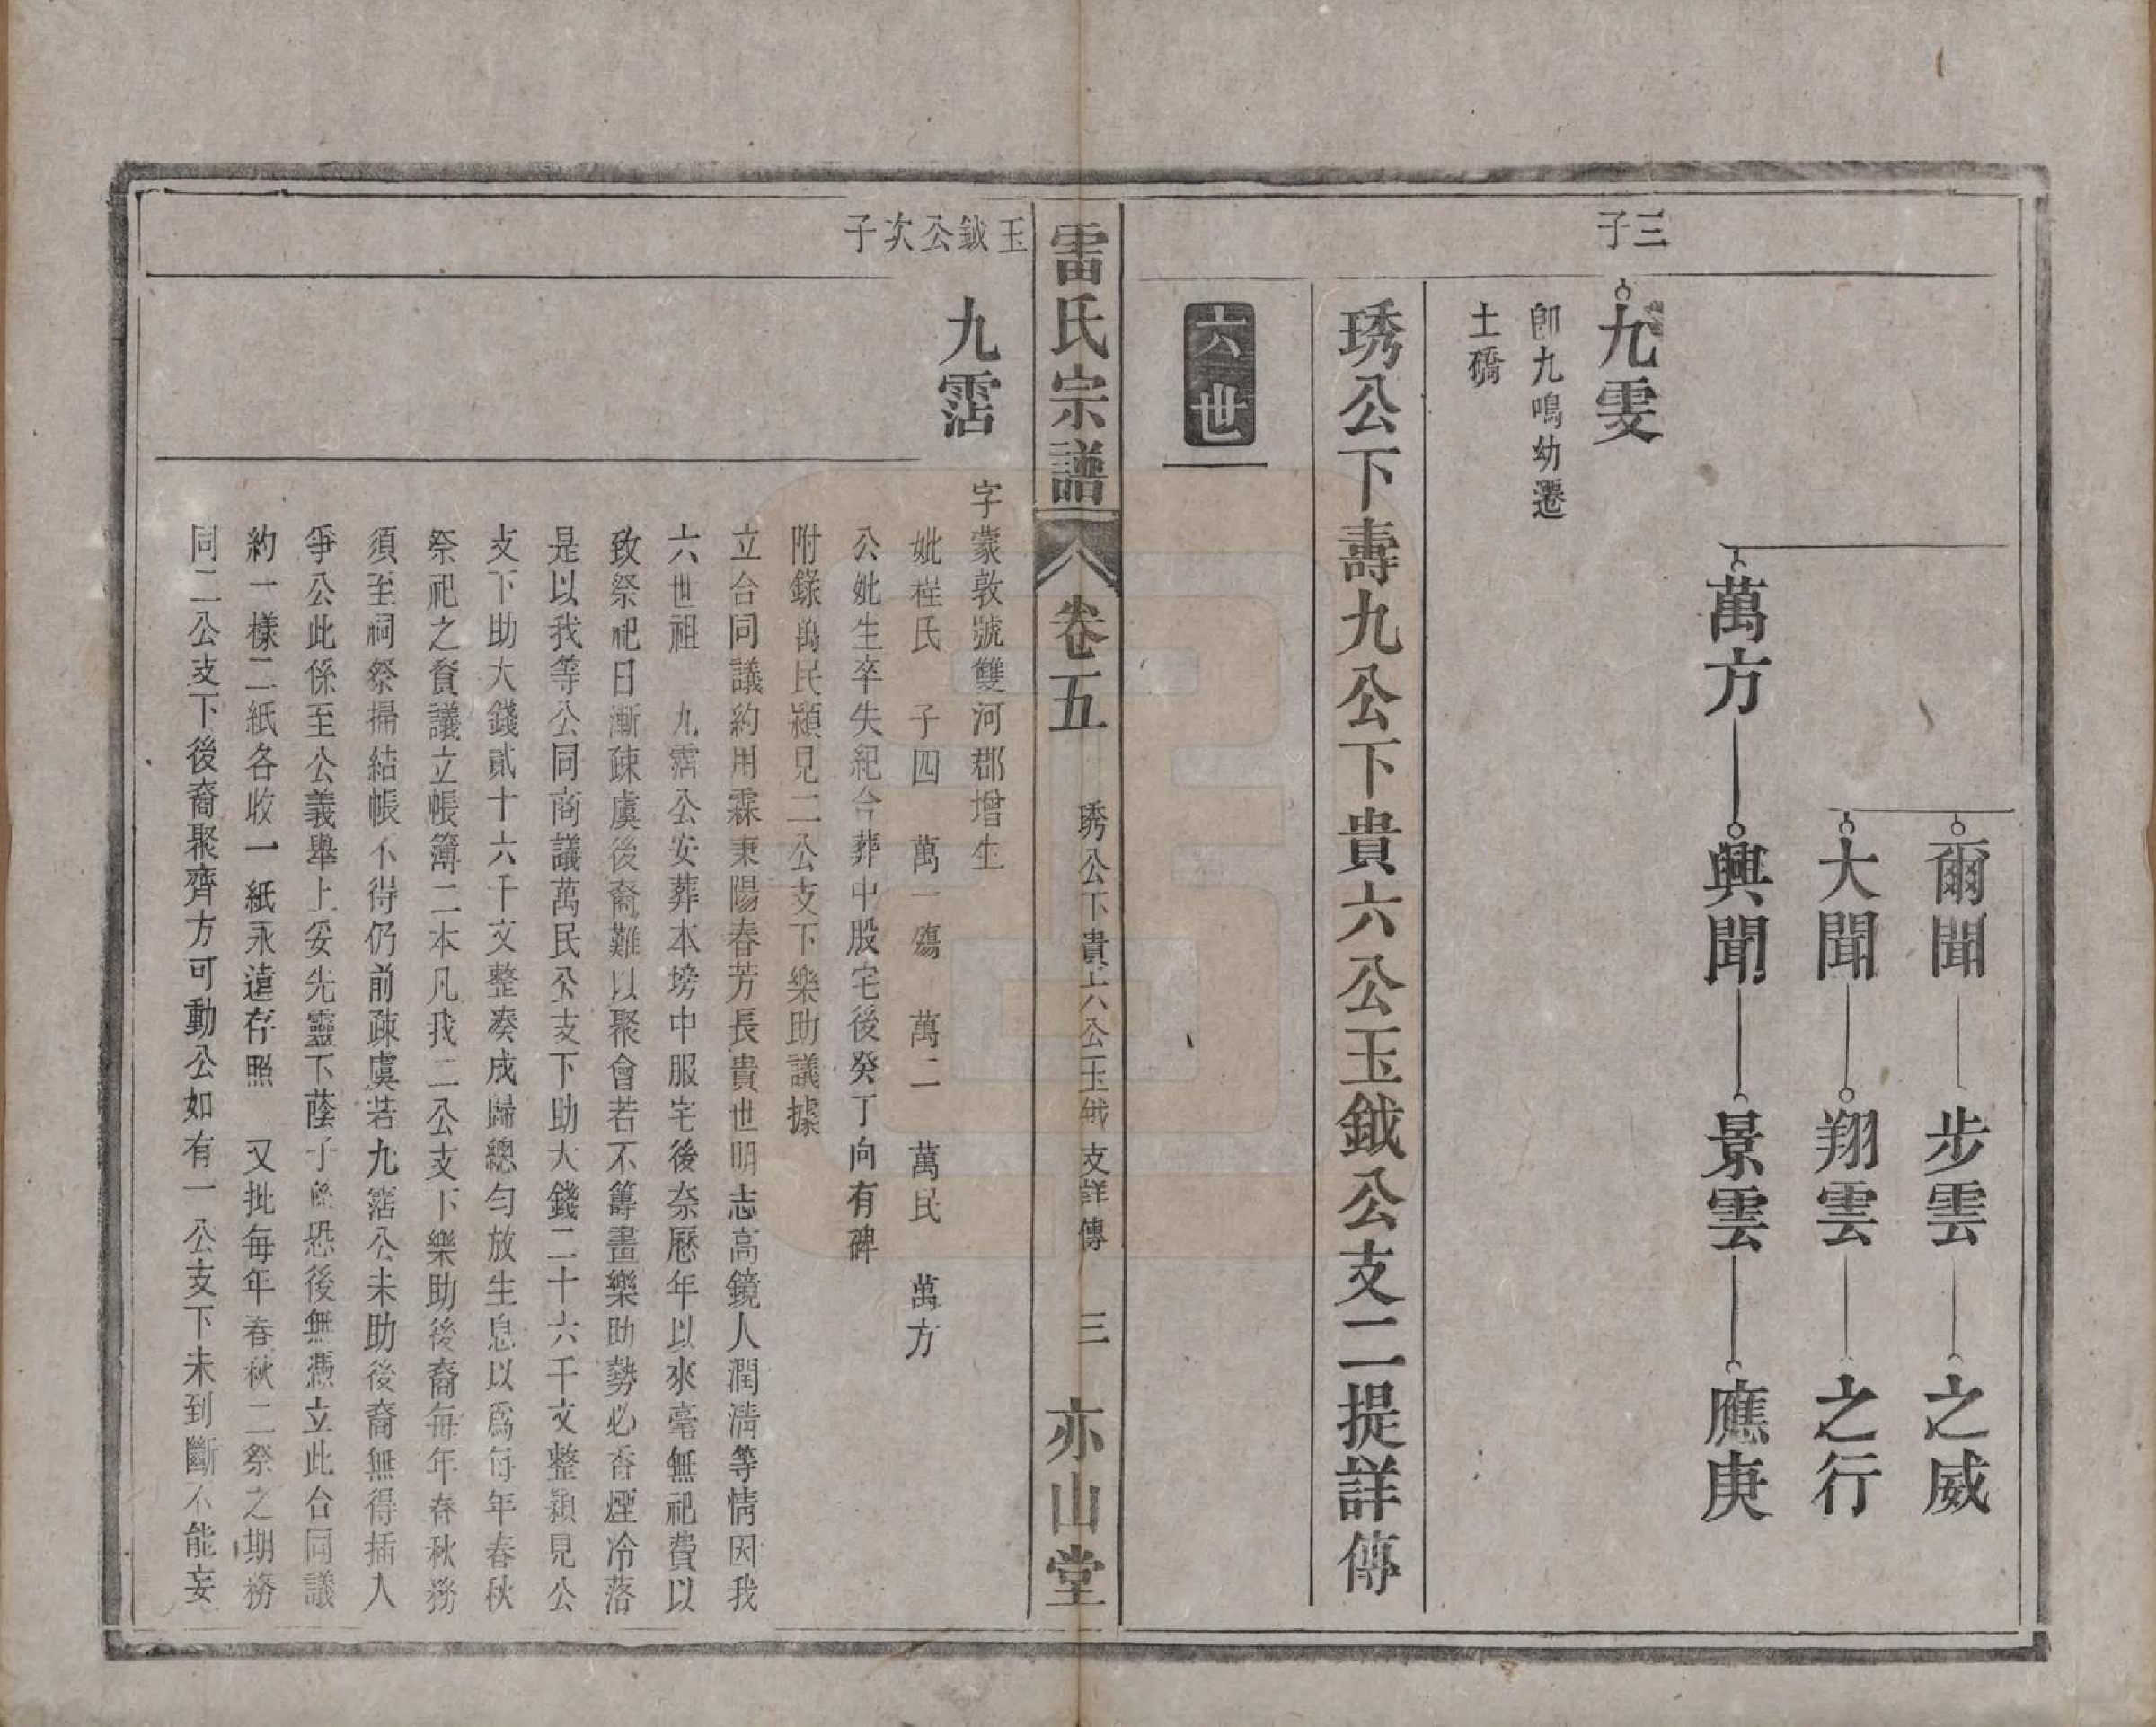 爾聞 步雲 之威
大聞 翔雲 之行
萬方 興聞 景雲 應庚
三子
九雯
卽九鳴幼遷
土礄
琇公下壽九公下貴六公玉鉞公支二提詳傳
六世
雷氏宗譜 卷五 琇公下貴六公玉鉞支詳傳 三 亦山堂
玉鉞公次子
九霑
字蒙敦號雙河郡增生
妣程氏 子四 萬一殤 萬二 萬民 萬方
公妣生卒失紀合葬中股宅後癸丁向有碑
附錄萬民穎見二公支下樂助議據
立合同議約用霖秉陽春芳長貴世明志高鏡人潤清等情因我
六世祖 九霑公安葬本塝中服宅後奈歷年以來毫無祀費以
致祭祀日漸疎虞後裔難以聚會若不籌畫樂助勢必香煙冷落
是以我等公同商議萬民公支下助大錢二十六千文整穎見公
支下助大錢貳十六千文整湊成歸總勻放生息以爲每年春秋
祭祀之資議立帳簿二本凡我二公支下樂助後裔每年春秋務
須至祠祭掃結帳不得仍前疎虞若九霑公未助後裔無得插入
爭公此係至公義舉上妥先靈下蔭子孫恐後無憑立此合同議
約一樣二紙各收一紙永遠存照 又批每年春秋二祭之期務
同二公支下後裔聚齊方可動公如有一公支下未到斷不能妄